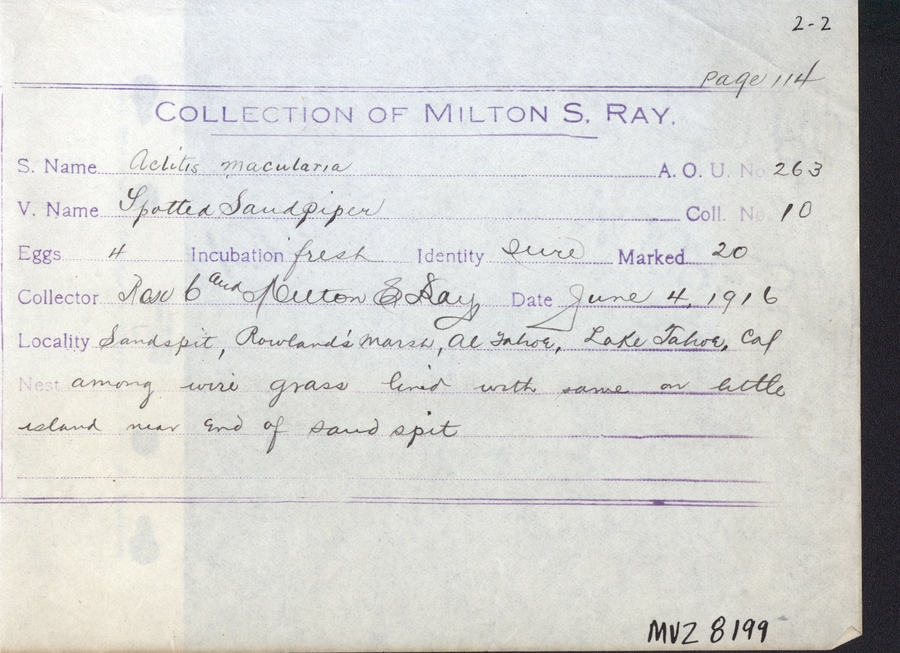 2-2
page 114
COLLECTION OF MILTON S. RAY.
S. Name Actitis macularia A. O. U. No 263
V. Name Spotted Sandpiper Coll. No. 10
Eggs 4 Incubation fresh Identity sure Marked 20
Collector Rose and Milton S Ray Date June 4, 1916
Locality Sandspit, Rowland's Marsh, Al Tahoe, Lake Tahoe, Cal
Nest among wire grass lined with same on little
island near end of sand spit
MVZ 8199